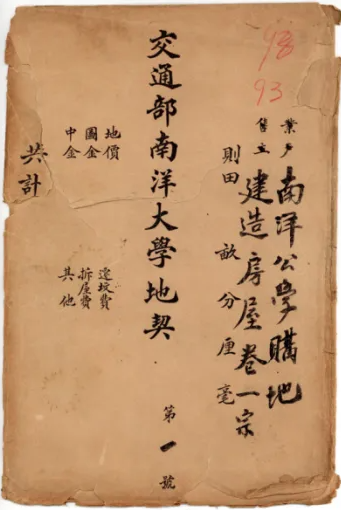 98
93
業戶 南洋公學購地
售主 建造房屋卷一宗
則田 畝 分 厘 毫
交通部南洋大學地契 第一號
地價 遷墳費
圖金 拆屋費
中金 其他
共計